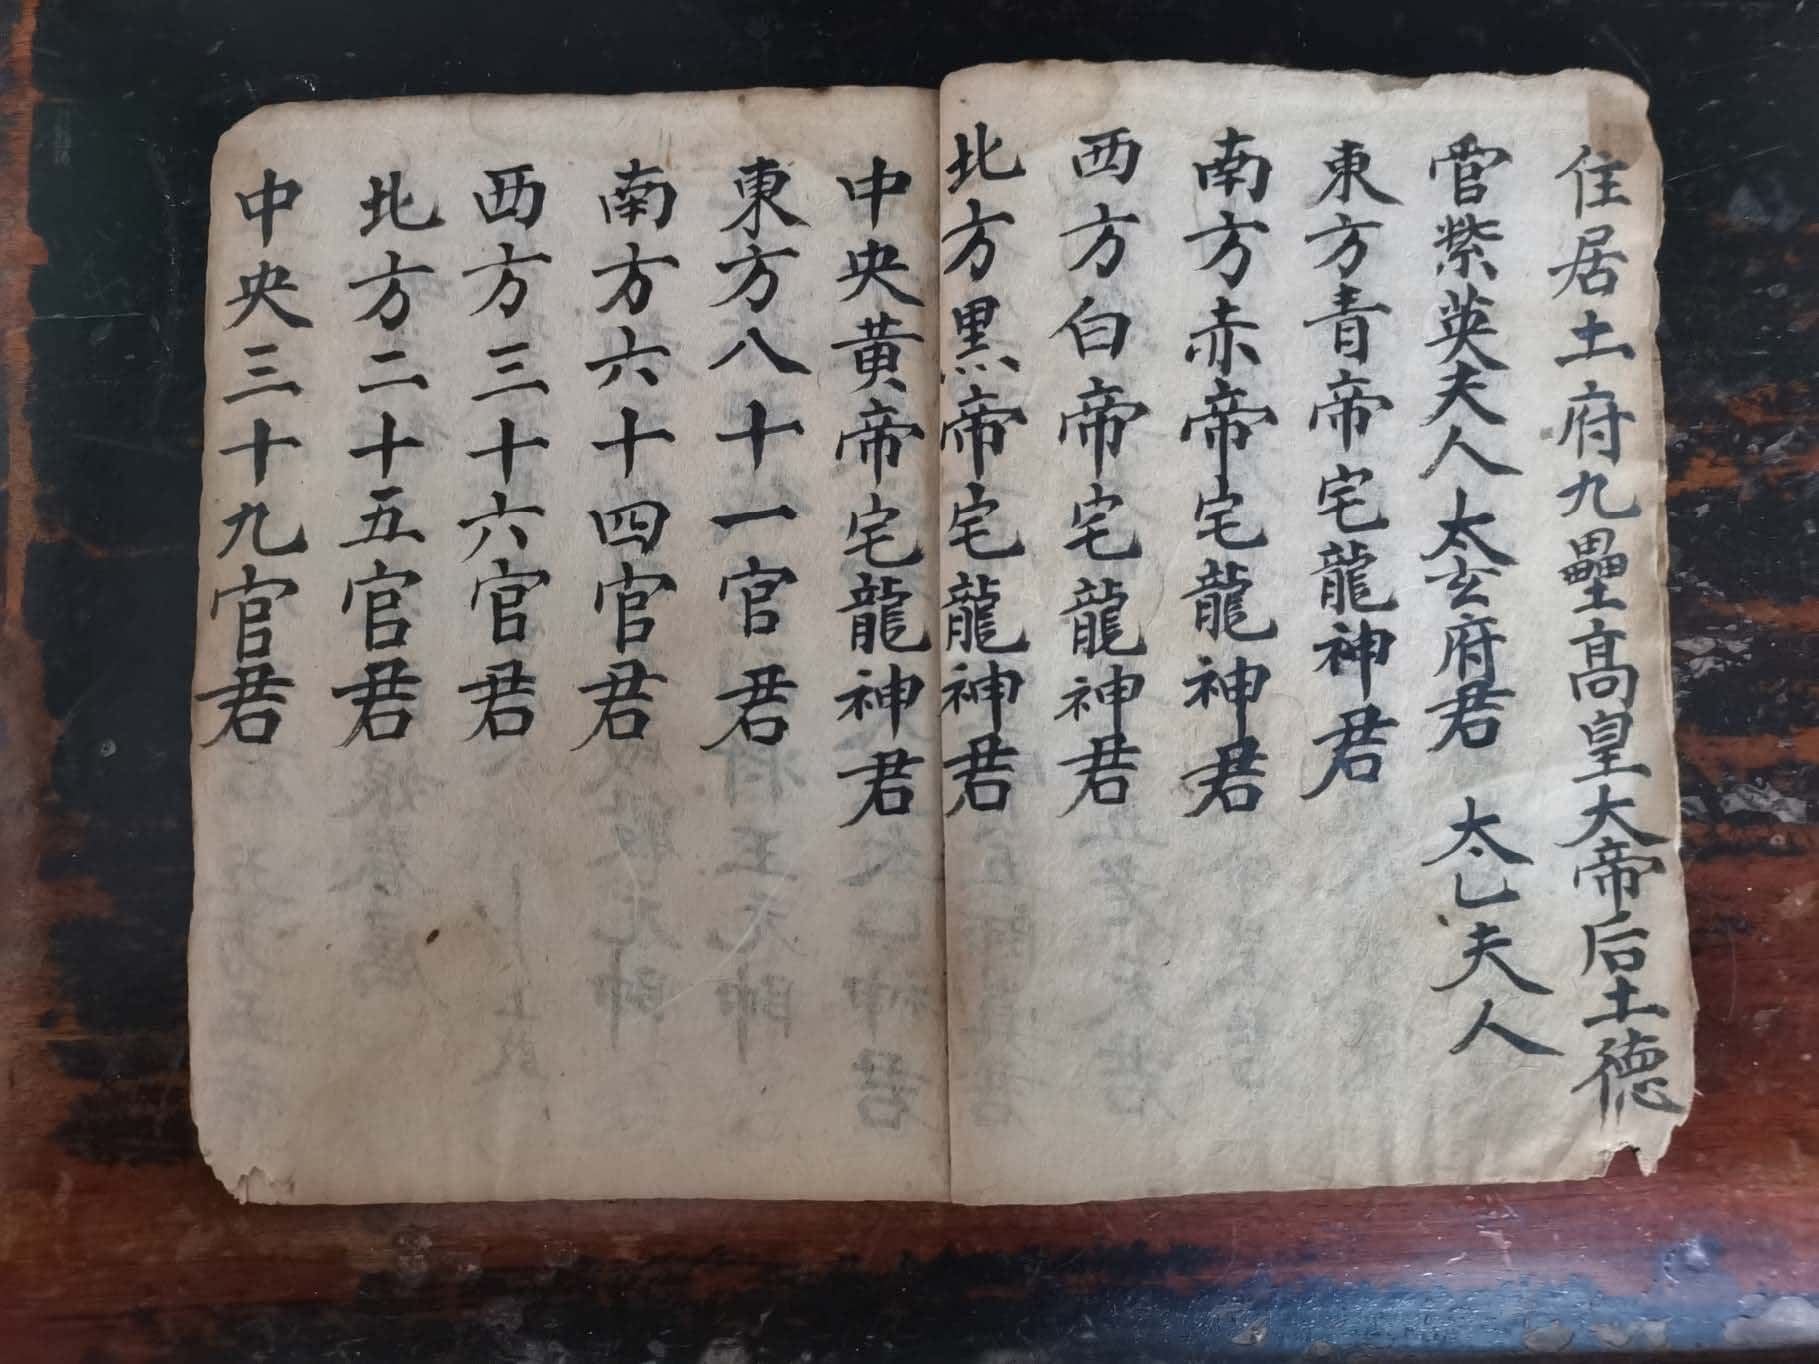 住居土府九壘高皇大帝后土德
霄紫英夫人太玄府君 太乙夫人
東方青帝宅龍神君
南方赤帝宅龍神君
西方白帝宅龍神君
北方黑帝宅龍神君
中央黄帝宅龍神君
東方八十一官君
南方六十四官君
西方三十六官君
北方二十五官君
中央三十九官君